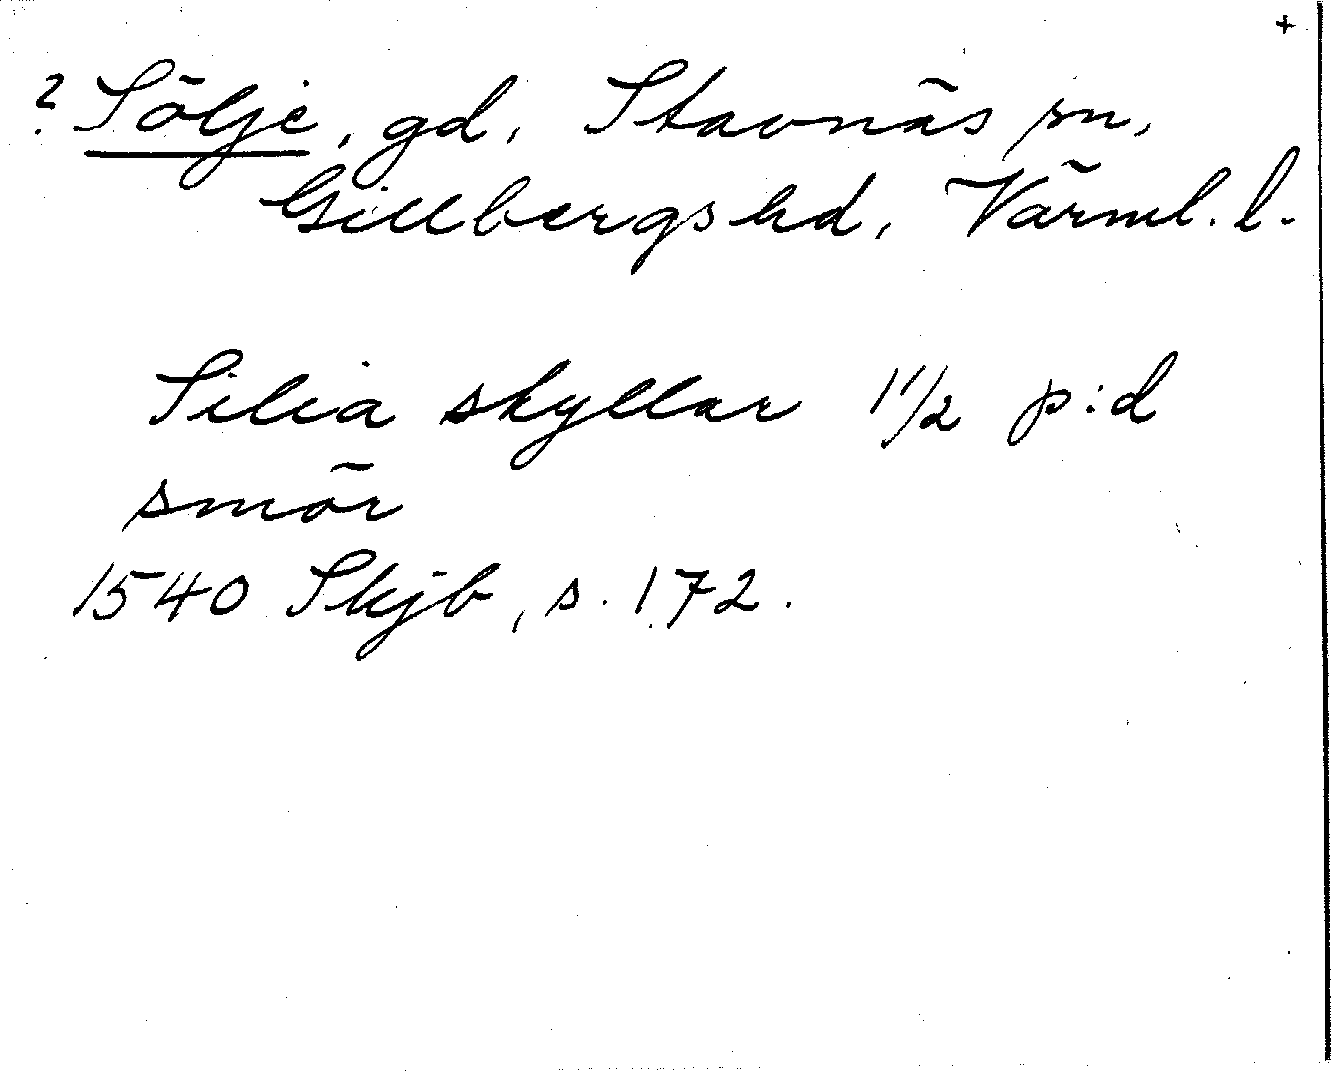 +
? Sölje, gd, Stavnäs sn,
Gillbergs hd, Värml. l.
Silia skyllar 1 1/2 p:d
smör
1540 Skjb, s. 172.